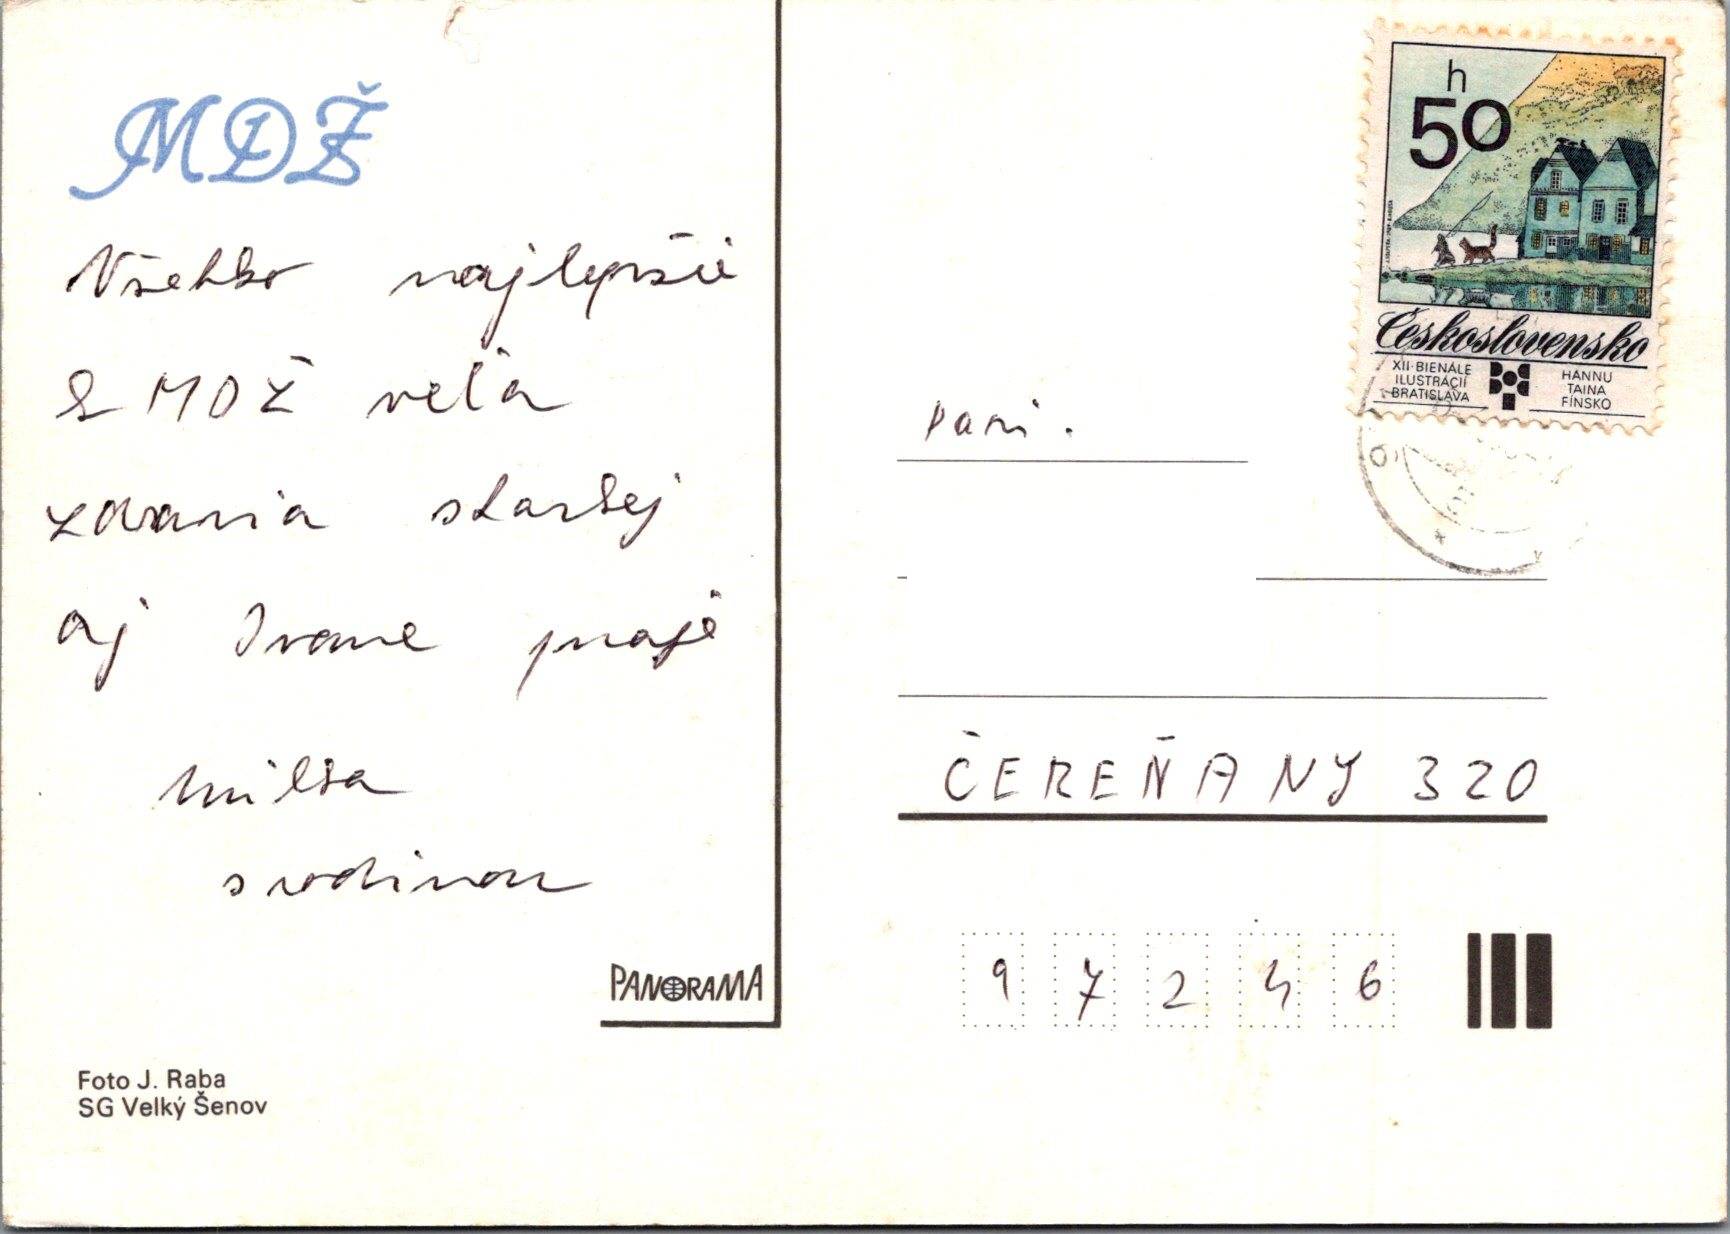 MDŽ
Všetko najlepšie
k MDŽ veľa
zdravia staršej
aj Ivane praje
Milka
s rodinou
PANORAMA
Foto J. Raba
SG Velký Šenov
h
50
Československo
XII·BIENÁLE
ILUSTRÁCIÍ
BRATISLAVA
HANNU
TAINA
FÍNSKO
Pani.
ČEREŇANY 320
97246